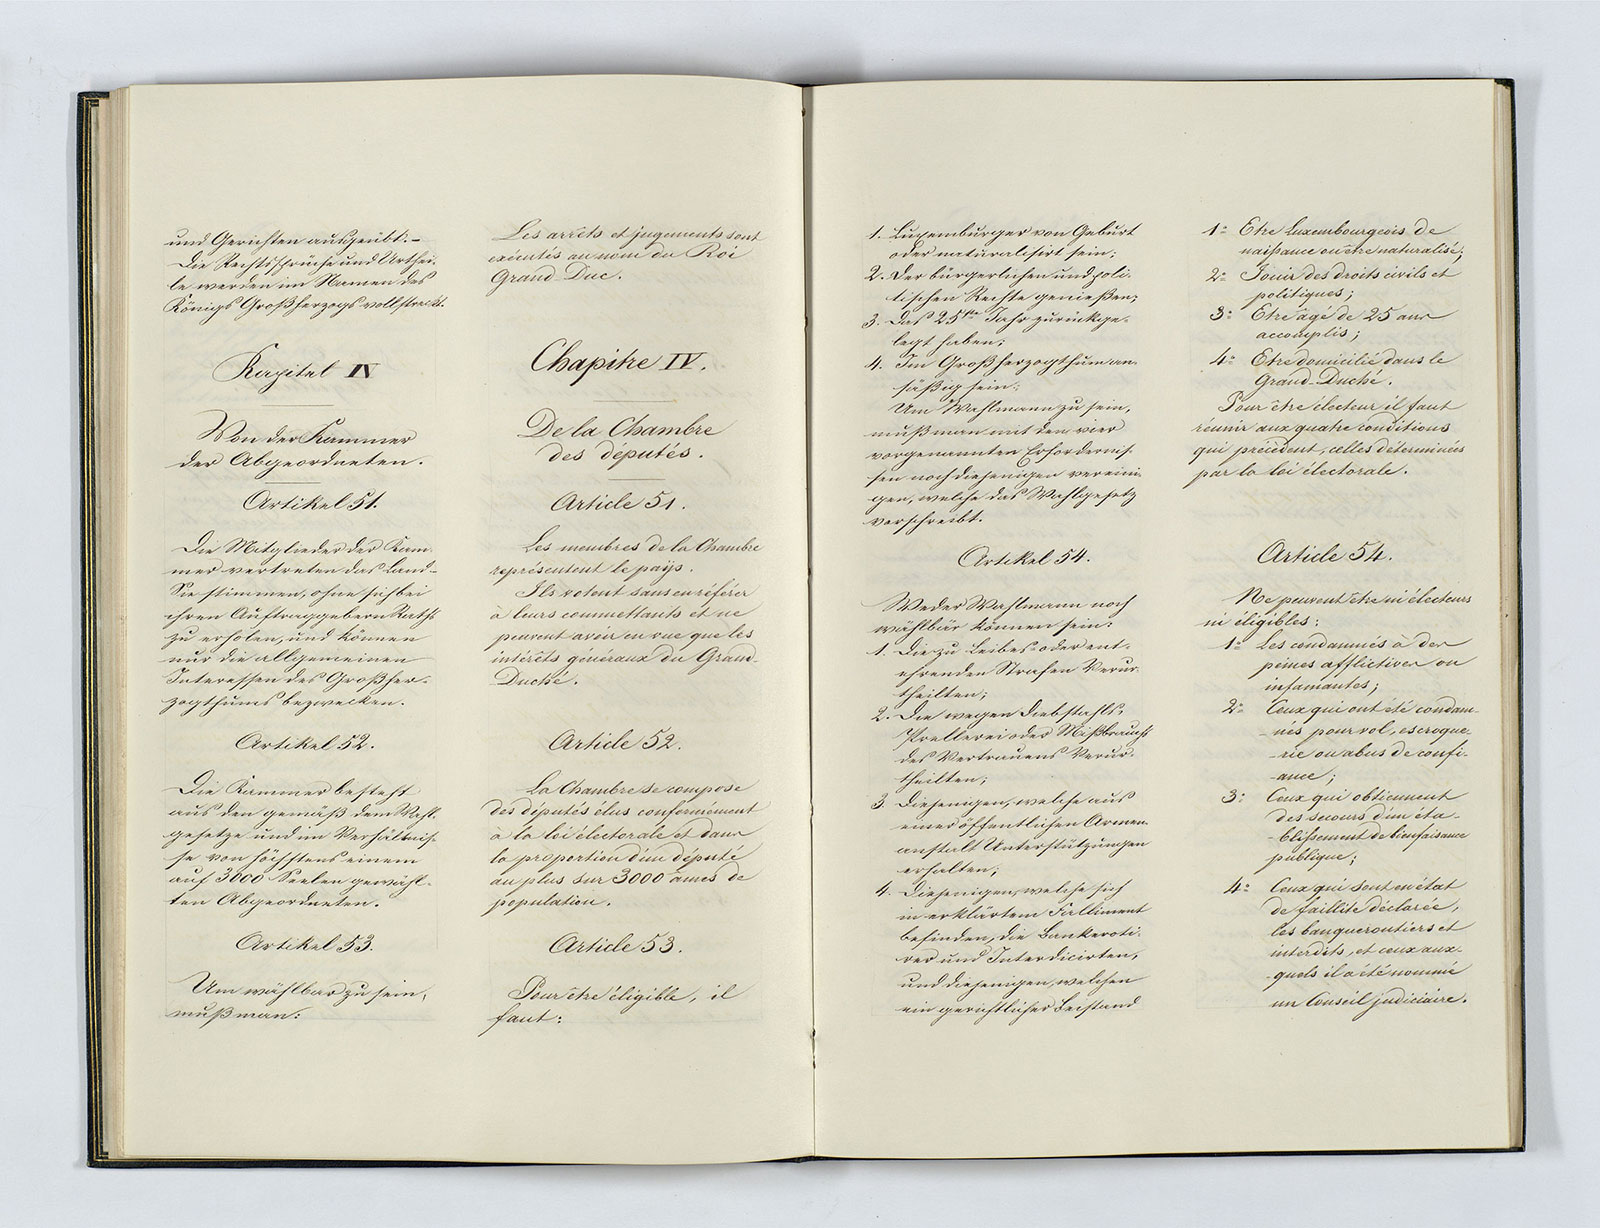 und Gerichten ausgeübt.–
Die Rechtssprüche und Urthei-
le werden im Namen des
Königs Großherzogs vollstreckt.
Kapitel IV
Von der Kammer
der Abgeordneten.
Artikel 51.
Die Mitglieder der Kam-
mer vertreten das Land–
Sie stimmen, ohne sich bei
ihren Auftraggebern Raths
zu erholen, und können
nur die allgemeinen
Interessen des Großher-
zogthums bezwecken.
Artikel 52.
Die Kammer besteht
aus den gemäß dem Wahl-
gesetze und im Verhältnis-
se von höchstens einem
auf 3000 Seelen gewähl-
ten Abgeordneten.
Artikel 53.
Um wählbar zu sein,
muß man:
Les arrêts et jugements sont
exécutés au nom du Roi
Grand-Duc.
Chapitre IV.
De la Chambre
des députés.
Article 51.
Les membres de la Chambre
représentent le pays.
Ils votent sans en référer
à leurs commettants et ne
peuvent avoir en vue que les
intérêts généraux du Grand-
Duché.
Article 52.
La Chambre se compose
des députés élus conformément
à la loi électorale et dans
la proportion d'un député
au plus sur 3000 âmes de
population.
Article 53.
Pour être éligible, il
faut:
1. Luxemburger von Geburt
oder naturalisirt sein;
2. Der bürgerlichen und poli-
tischen Rechte genießen;
3. Das 25te Jahr zurückge-
legt haben;
4. Im Großherzogthum an-
säßig sein.
Um Wahlmann zu sein,
muß man mit den vier
vorgenannten Erfordernis-
sen noch diejenigen vereini-
gen, welche das Wahlgesetz
vorschreibt.
Artikel 54.
Weder Wahlmann noch
wählbar können sein:
1. Die zu Leibes- oder ent-
ehrenden Strafen Verur-
theilten;
2. Die wegen Diebstahls,
Prellerei oder Mißbrauchs
des Vertrauens Verur-
theilten;
3. Diejenigen, welche aus
einer öffentlichen Armen-
anstalt Unterstützungen
erhalten;
4. Diejenigen, welche sich
in erklärtem Falliment
befinden, die Bankeroti-
rer und Interdicirten,
und diejenigen, welchen
ein gerichtlicher Beistand
1° Etre Luxembourgeois de
naissance ou être naturalisé;
2° Jouir des droits civils et
politiques;
3° Etre âgé de 25 ans
accomplis;
4° Etre domicilié dans le
Grand-Duché.
Pour être électeur il faut
réunir aux quatre conditions
qui précèdent, celles déterminées
par la loi électorale.
Article 54.
Ne peuvent être ni électeurs
ni éligibles:
1° Les condamnés à des
peines afflictives ou
infamantes;
2° Ceux qui ont été condam-
-nés pour vol, escroque-
-rie ou abus de confi-
-ance;
3° Ceux qui obtiennent
des secours d'un éta-
-blissement de bienfaisance
publique;
4° Ceux qui sont en état
de faillite déclarée,
les banqueroutiers et
interdits, et ceux aux-
-quels il a été nommé
un Conseil judiciaire.